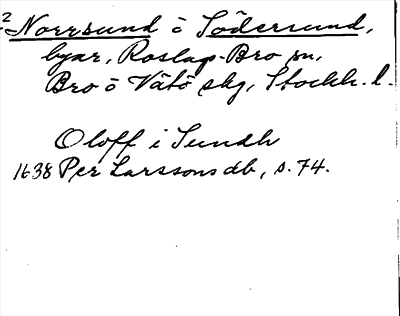 2 Norrsund ō Södersund,
byar, Roslags-Bro sn,
Bro ō Vätö skg, Stockh. l.
Oloff i Sundh
1638 Per Larssons db, s. 74.